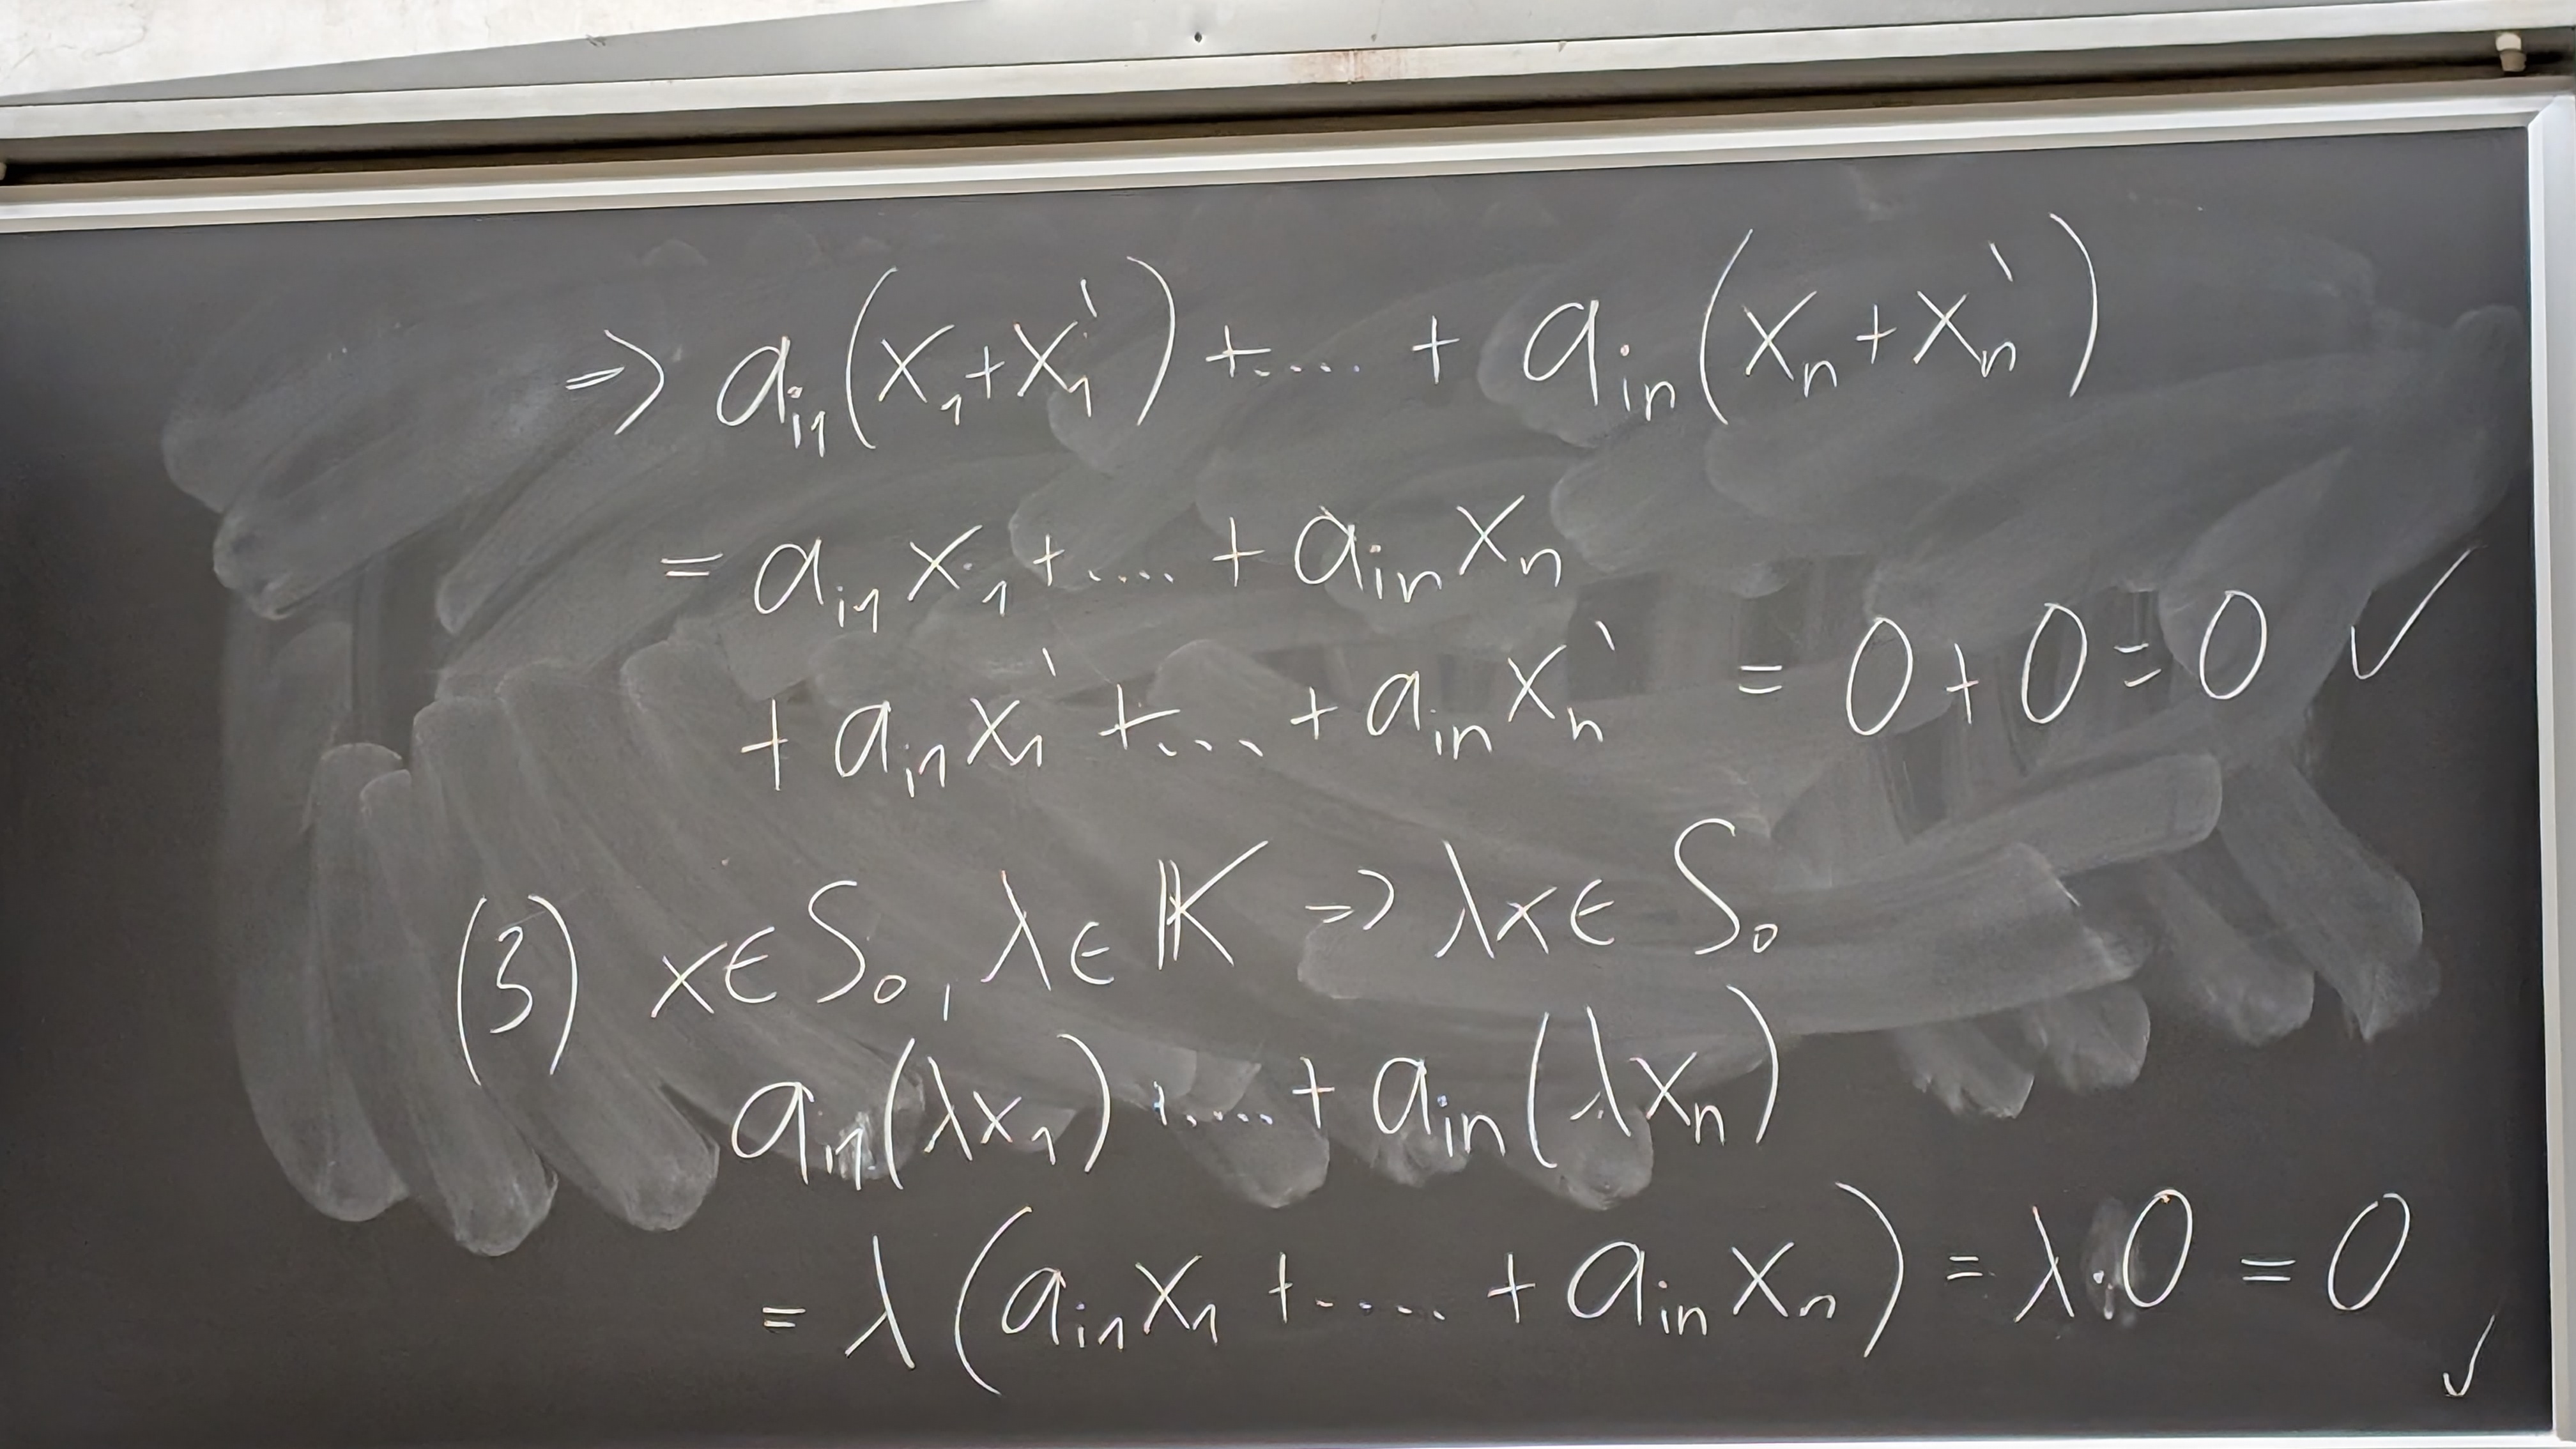 ⇒ a_{i1}(x_1+x_1`) +.... + a_{in}(x_n+x_n`)
= a_{i1} x_1 +.... + a_{in} x_n
+ a_{i1} x_1` +... + a_{in} x_n` = 0 + 0 = 0 ✓
(3) x∈S_0, λ∈𝕂 ⇒ λx∈ S_0
a_{i1}(λx_1) +.... + a_{in}(λx_n)
= λ(a_{i1}x_1 +..... + a_{in}x_n) = λ·0 = 0
✓